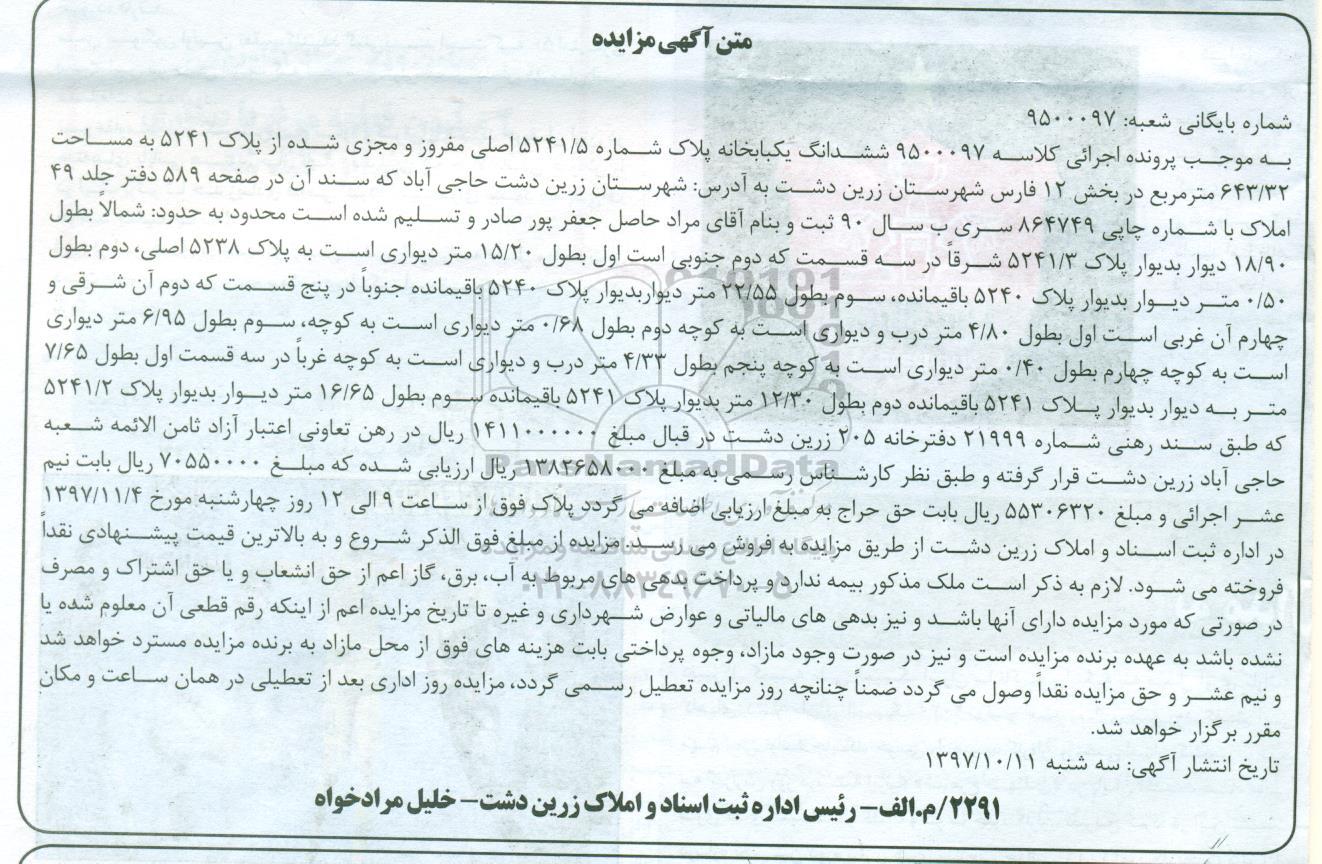 متن آگهی مزایده
شماره بایگانی شعبه: ۹۵۰۰۰۹۷
به موجب پرونده اجرائی کلاسه ۹۵۰۰۰۹۷ ششدانگ یکبابخانه پلاک شماره ۵۲۴۱/۵ اصلی مفروز و مجزی شده از پلاک ۵۲۴۱ به مساحت
۶۴۳/۳۲ مترمربع در بخش ۱۲ فارس شهرستان زرین دشت به آدرس: شهرستان زرین دشت حاجی آباد که سند آن در صفحه ۵۸۹ دفتر جلد ۴۹
املاک با شماره چاپی ۸۶۴۷۴۹ سری ب سال ۹۰ ثبت و بنام آقای مراد حاصل جعفر پور صادر و تسلیم شده است محدود به حدود: شمالاً بطول
۱۸/۹۰ دیوار بدیوار پلاک ۵۲۴۱/۳ شرقاً در سه قسمت که دوم جنوبی است اول بطول ۱۵/۲۰ متر دیواری است به پلاک ۵۲۳۸ اصلی، دوم بطول
۰/۵۰ متر دیوار بدیوار پلاک ۵۲۴۰ باقیمانده، سوم بطول ۲۲/۵۵ متر دیواربدیوار پلاک ۵۲۴۰ باقیمانده جنوباً در پنج قسمت که دوم آن شرقی و
چهارم آن غربی است اول بطول ۴/۸۰ متر درب و دیواری است به کوچه دوم بطول ۰/۶۸ متر دیواری است به کوچه، سوم بطول ۶/۹۵ متر دیواری
است به کوچه چهارم بطول ۰/۴۰ متر دیواری است به کوچه پنجم بطول ۴/۳۳ متر درب و دیواری است به کوچه غرباً در سه قسمت اول بطول ۷/۶۵
متر به دیوار بدیوار پلاک ۵۲۴۱ باقیمانده دوم بطول ۱۲/۳۰ متر بدیوار پلاک ۵۲۴۱ باقیمانده سوم بطول ۱۶/۶۵ متر دیوار بدیوار پلاک ۵۲۴۱/۲
که طبق سند رهنی شماره ۲۱۹۹۹ دفترخانه ۲۰۵ زرین دشت در قبال مبلغ ۱۴۱۱۰۰۰۰۰۰ ریال در رهن تعاونی اعتبار آزاد ثامن الائمه شعبه
حاجی آباد زرین دشت قرار گرفته و طبق نظر کارشناس رسمی به مبلغ ۱۳۸۲۶۵۸۰۰۰ ریال ارزیابی شده که مبلغ ۷۰۵۵۰۰۰۰ ریال بابت نیم
عشر اجرائی و مبلغ ۵۵۳۰۶۳۲۰ ریال بابت حق حراج به مبلغ ارزیابی اضافه می گردد پلاک فوق از ساعت ۹ الی ۱۲ روز چهارشنبه مورخ ۱۳۹۷/۱۱/۴
در اداره ثبت اسناد و املاک زرین دشت از طریق مزایده به فروش می رسد. مزایده از مبلغ فوق الذکر شروع و به بالاترین قیمت پیشنهادی نقداً
فروخته می شود. لازم به ذکر است ملک مذکور بیمه ندارد و پرداخت بدهی های مربوط به آب، برق، گاز اعم از حق انشعاب و یا حق اشتراک و مصرف
در صورتی که مورد مزایده دارای آنها باشد و نیز بدهی های مالیاتی و عوارض شهرداری و غیره تا تاریخ مزایده اعم از اینکه رقم قطعی آن معلوم شده یا
نشده باشد به عهده برنده مزایده است و نیز در صورت وجود مازاد، وجوه پرداختی بابت هزینه های فوق از محل مازاد به برنده مزایده مسترد خواهد شد
و نیم عشر و حق مزایده نقداً وصول می گردد ضمناً چنانچه روز مزایده تعطیل رسمی گردد، مزایده روز اداری بعد از تعطیلی در همان ساعت و مکان
مقرر برگزار خواهد شد.
تاریخ انتشار آگهی: سه شنبه ۱۳۹۷/۱۰/۱۱
۲۲۹۱/م.الف- رئیس اداره ثبت اسناد و املاک زرین دشت- خلیل مرادخواه
ParsNamadData